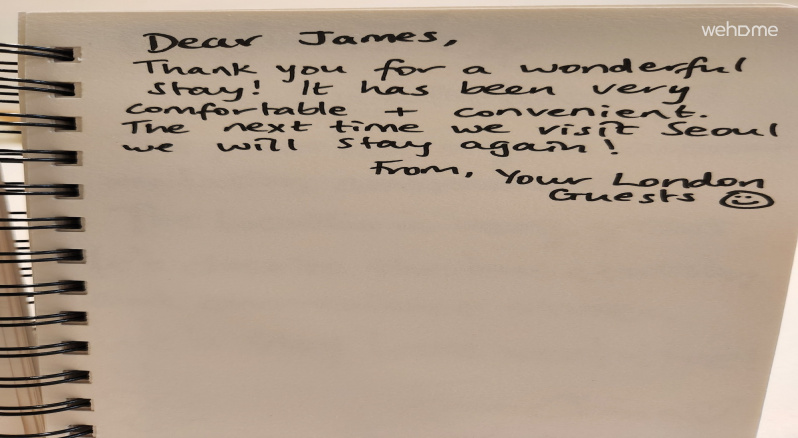 wehome
Dear James,
Thank you for a wonderful
stay! It has been very
comfortable + convenient.
The next time we visit Seoul
we will stay again!
From, Your London
Guests ☺